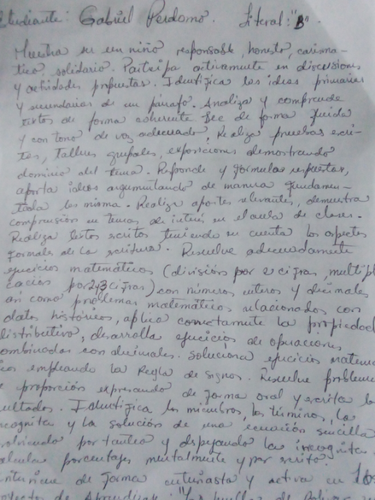 Estudiante: Gabriel Perdomo. Literal: "B"
es un niño responsable, honesto, carismá-
tico, solidario. Participa activamente en discusiones
y actividades propuestas. Identifica las ideas primarias
y secundarias de un párrafo. Analiza y comprende
textos de forma coherente. Lee de forma fluida
y con tono de voz adecuado. Realiza pruebas escri-
tas, talleres grupales, exposiciones demostrando
dominio del tema. Responde y formula respuestas,
aporta ideas argumentando de manera fundamen-
tada las misma. Realiza aportes relevantes, demuestra
comprensión en temas de interés en el aula de clases.
Realiza textos escritos teniendo en cuenta los aspectos
formales de la escritura. Resuelve adecuadamente
ejercicios matemáticos (división por 2 cifras, multipli
cación por 2y3 cifras) con números enteros y decimales
así como problemas matemáticos relacionados con
datos históricos, aplica correctamente la propiedad
distributiva, desarrolla ejercicios de operaciones
combinadas con decimales. Soluciona ejercicios
empleando la Regla de signos. Resuelve problemas
proporción expresando de forma oral y escrita los
resultados. Identifica los miembros, los términos, la
incógnita y la solución de una ecuación sencilla
resolviendo por tanteo y despejando la incógnita.
Calcula porcentajes mentalmente y por escrito.
de forma entusiasta y activa en los
de Aprendizaje: "la huella de